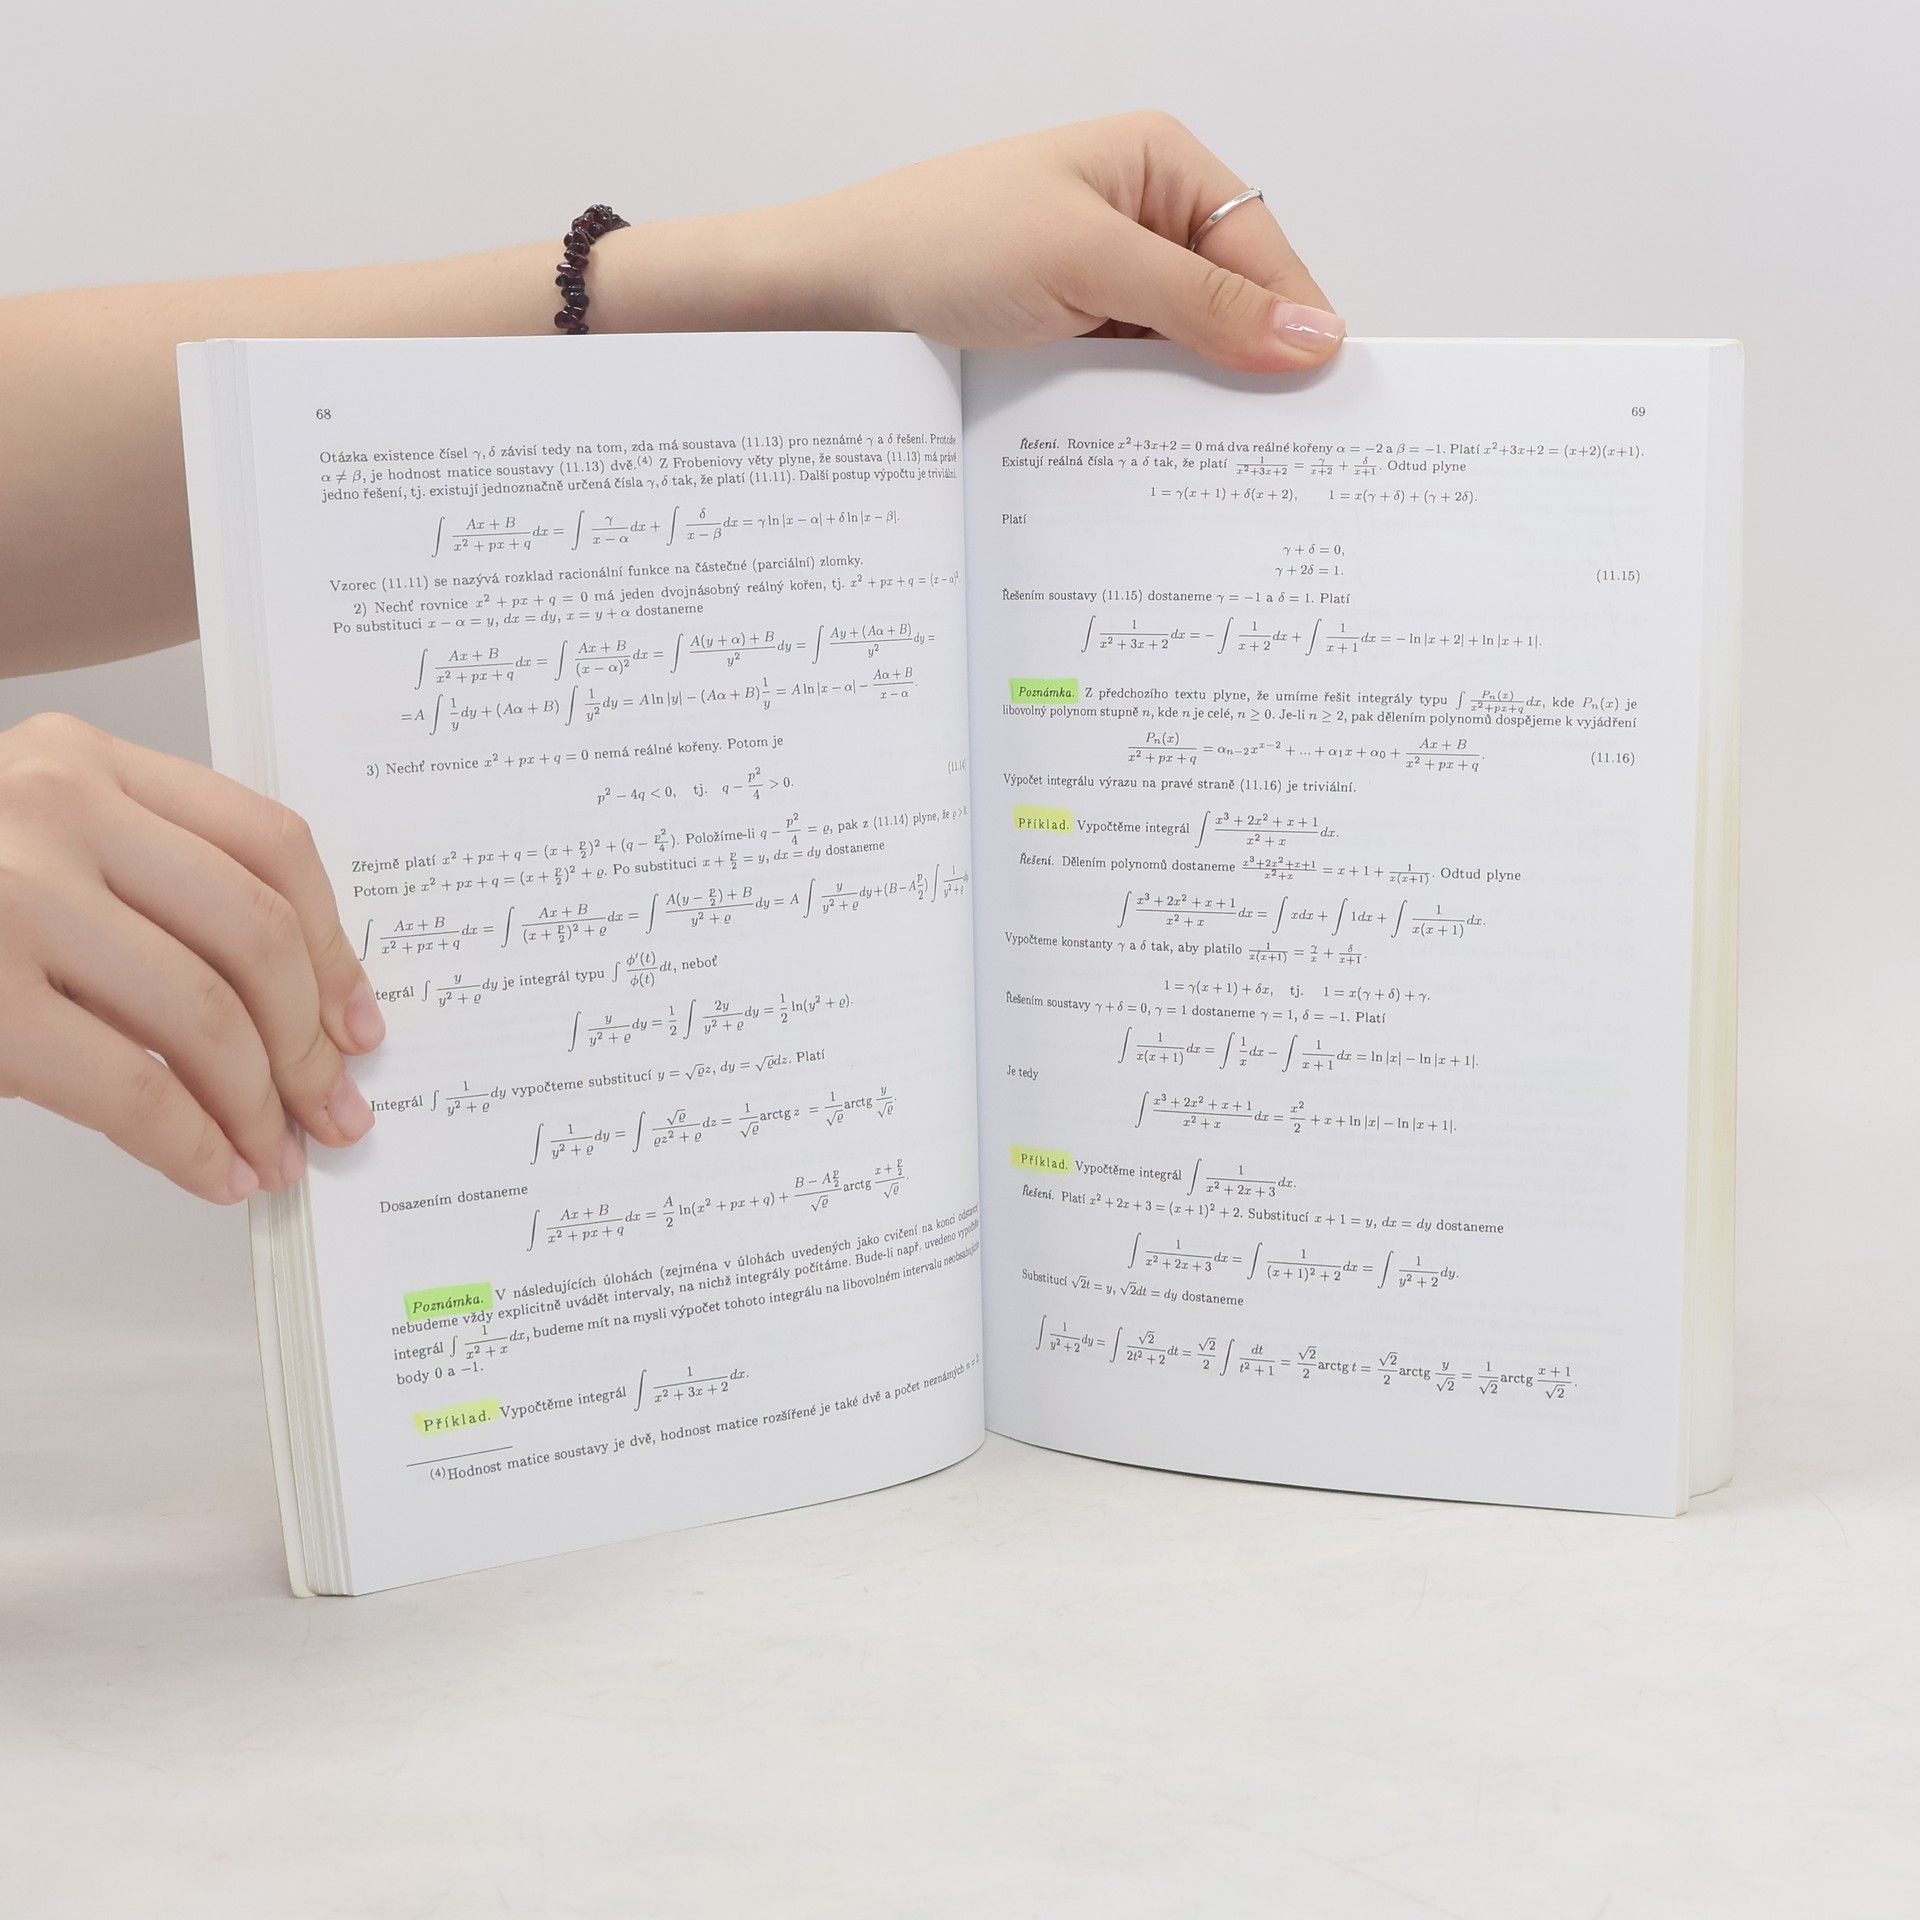 68
Otázka existence čísel γ, δ závisí tedy na tom, zda má soustava (11.13) pro neznámé γ a δ řešení. Protože
α ≠ β, je hodnost matice soustavy (11.13) dvě.(4) Z Frobeniovy věty plyne, že soustava (11.13) má právě
jedno řešení, tj. existují jednoznačně určená čísla γ, δ tak, že platí (11.11). Další postup výpočtu je triviální.
∫ (Ax + B)/(x² + px + q) dx = ∫ γ/(x − α) dx + ∫ δ/(x − β) dx = γ ln |x − α| + δ ln |x − β|.
Vzorec (11.11) se nazývá rozklad racionální funkce na částečné (parciální) zlomky.
2) Nechť rovnice x² + px + q = 0 má jeden dvojnásobný reálný kořen, tj. x² + px + q = (x − α)².
Po substituci x − α = y, dx = dy, x = y + α dostaneme
∫ (Ax + B)/(x² + px + q) dx = ∫ (Ax + B)/(x − α)² dx = ∫ (A(y + α) + B)/y² dy = ∫ (Ay + (Aα + B))/y² dy =
= A ∫ 1/y dy + (Aα + B) ∫ 1/y² dy = A ln |y| − (Aα + B) 1/y = A ln |x − α| − (Aα + B)/(x − α).
3) Nechť rovnice x² + px + q = 0 nemá reálné kořeny. Potom je
p² − 4q < 0, tj. q − p²/4 > 0.
Zřejmě platí x² + px + q = (x + p/2)² + (q − p²/4). Položíme-li q − p²/4 = ϱ, pak z (11.14) plyne, že ϱ > 0.
Potom je x² + px + q = (x + p/2)² + ϱ. Po substituci x + p/2 = y, dx = dy dostaneme
∫ (Ax + B)/(x² + px + q) dx = ∫ (Ax + B)/((x + p/2)² + ϱ) dx = ∫ (A(y − p/2) + B)/(y² + ϱ) dy = A ∫ y/(y² + ϱ) dy + (B − A p/2) ∫ 1/(y² + ϱ) dy
tegrál ∫ y/(y² + ϱ) dy je integrál typu ∫ ϕ′(t)/ϕ(t) dt, neboť
∫ y/(y² + ϱ) dy = 1/2 ∫ 2y/(y² + ϱ) dy = 1/2 ln(y² + ϱ).
Integrál ∫ 1/(y² + ϱ) dy vypočteme substitucí y = √ϱz, dy = √ϱdz. Platí
∫ 1/(y² + ϱ) dy = ∫ √ϱ/(ϱz² + ϱ) dz = 1/√ϱ arctg z = 1/√ϱ arctg y/√ϱ.
Dosazením dostaneme
∫ (Ax + B)/(x² + px + q) dx = A/2 ln(x² + px + q) + (B − A p/2)/√ϱ arctg (x + p/2)/√ϱ.
Poznámka. V následujících úlohách (zejména v úlohách uvedených jako cvičení na konci odstavce)
nebudeme vždy explicitně uvádět intervaly, na nichž integrály počítáme. Bude-li např. uvedeno vypočtěte
integrál ∫ 1/(x² + x) dx, budeme mít na mysli výpočet tohoto integrálu na libovolném intervalu neobsahujícím
body 0 a −1.
Příklad. Vypočtěme integrál ∫ 1/(x² + 3x + 2) dx.
(4) Hodnost matice soustavy je dvě, hodnost matice rozšířené je také dvě a počet neznámých n = 2.
69
Řešení. Rovnice x²+3x+2 = 0 má dva reálné kořeny α = −2 a β = −1. Platí x²+3x+2 = (x+2)(x+1).
Existují reálná čísla γ a δ tak, že platí 1/(x²+3x+2) = γ/(x+2) + δ/(x+1). Odtud plyne
1 = γ(x + 1) + δ(x + 2), 1 = x(γ + δ) + (γ + 2δ).
Platí
γ + δ = 0,
γ + 2δ = 1. (11.15)
Řešením soustavy (11.15) dostaneme γ = −1 a δ = 1. Platí
∫ 1/(x² + 3x + 2) dx = − ∫ 1/(x + 2) dx + ∫ 1/(x + 1) dx = − ln |x + 2| + ln |x + 1|.
Poznámka. Z předchozího textu plyne, že umíme řešit integrály typu ∫ Pₙ(x)/(x²+px+q) dx, kde Pₙ(x) je
libovolný polynom stupně n, kde n je celé, n ≥ 0. Je-li n ≥ 2, pak dělením polynomů dospějeme k vyjádření
Pₙ(x)/(x² + px + q) = αₙ₋₂xˣ⁻² + ... + α₁x + α₀ + (Ax + B)/(x² + px + q). (11.16)
Výpočet integrálu výrazu na pravé straně (11.16) je triviální.
Příklad. Vypočtěme integrál ∫ (x³ + 2x² + x + 1)/(x² + x) dx.
Řešení. Dělením polynomů dostaneme (x³+2x²+x+1)/(x²+x) = x + 1 + 1/(x(x+1)). Odtud plyne
∫ (x³ + 2x² + x + 1)/(x² + x) dx = ∫ xdx + ∫ 1dx + ∫ 1/(x(x + 1)) dx.
Vypočteme konstanty γ a δ tak, aby platilo 1/(x(x+1)) = γ/x + δ/(x+1).
1 = γ(x + 1) + δx, tj. 1 = x(γ + δ) + γ.
Řešením soustavy γ + δ = 0, γ = 1 dostaneme γ = 1, δ = −1. Platí
∫ 1/(x(x + 1)) dx = ∫ 1/x dx − ∫ 1/(x + 1) dx = ln |x| − ln |x + 1|.
Je tedy
∫ (x³ + 2x² + x + 1)/(x² + x) dx = x²/2 + x + ln |x| − ln |x + 1|.
Příklad. Vypočtěme integrál ∫ 1/(x² + 2x + 3) dx.
Řešení. Platí x² + 2x + 3 = (x + 1)² + 2. Substitucí x + 1 = y, dx = dy dostaneme
∫ 1/(x² + 2x + 3) dx = ∫ 1/((x + 1)² + 2) dx = ∫ 1/(y² + 2) dy.
Substitucí √2t = y, √2dt = dy dostaneme
∫ 1/(y² + 2) dy = ∫ √2/(2t² + 2) dt = √2/2 ∫ dt/(t² + 1) = √2/2 arctg t = √2/2 arctg y/√2 = 1/√2 arctg (x + 1)/√2.